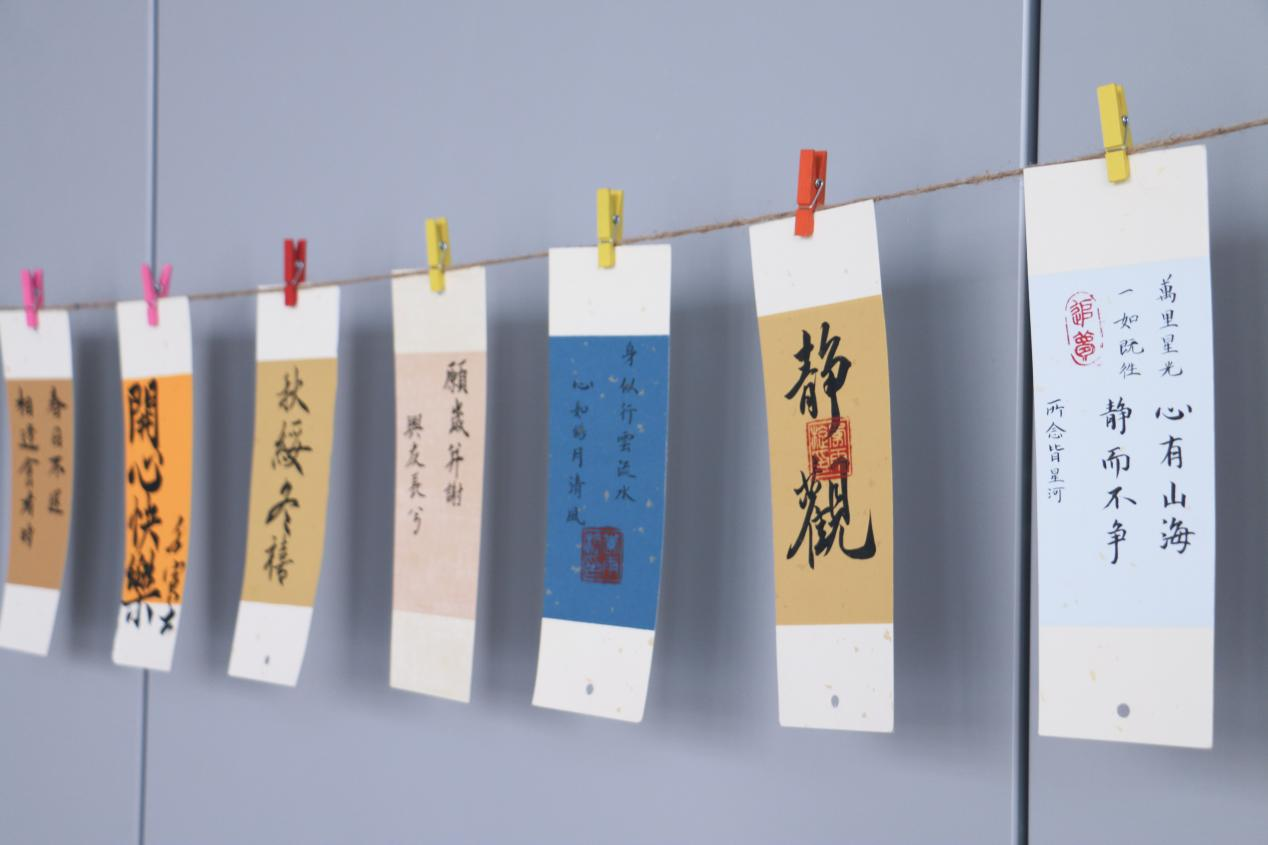 春日不遲
相逢會有時
開心快樂
秋綏冬禧
願歲并謝
與友長兮
身似行雲流水
心如月清風
静觀
萬里星光
心有山海
一如既往
静而不争
追夢
所念皆星河